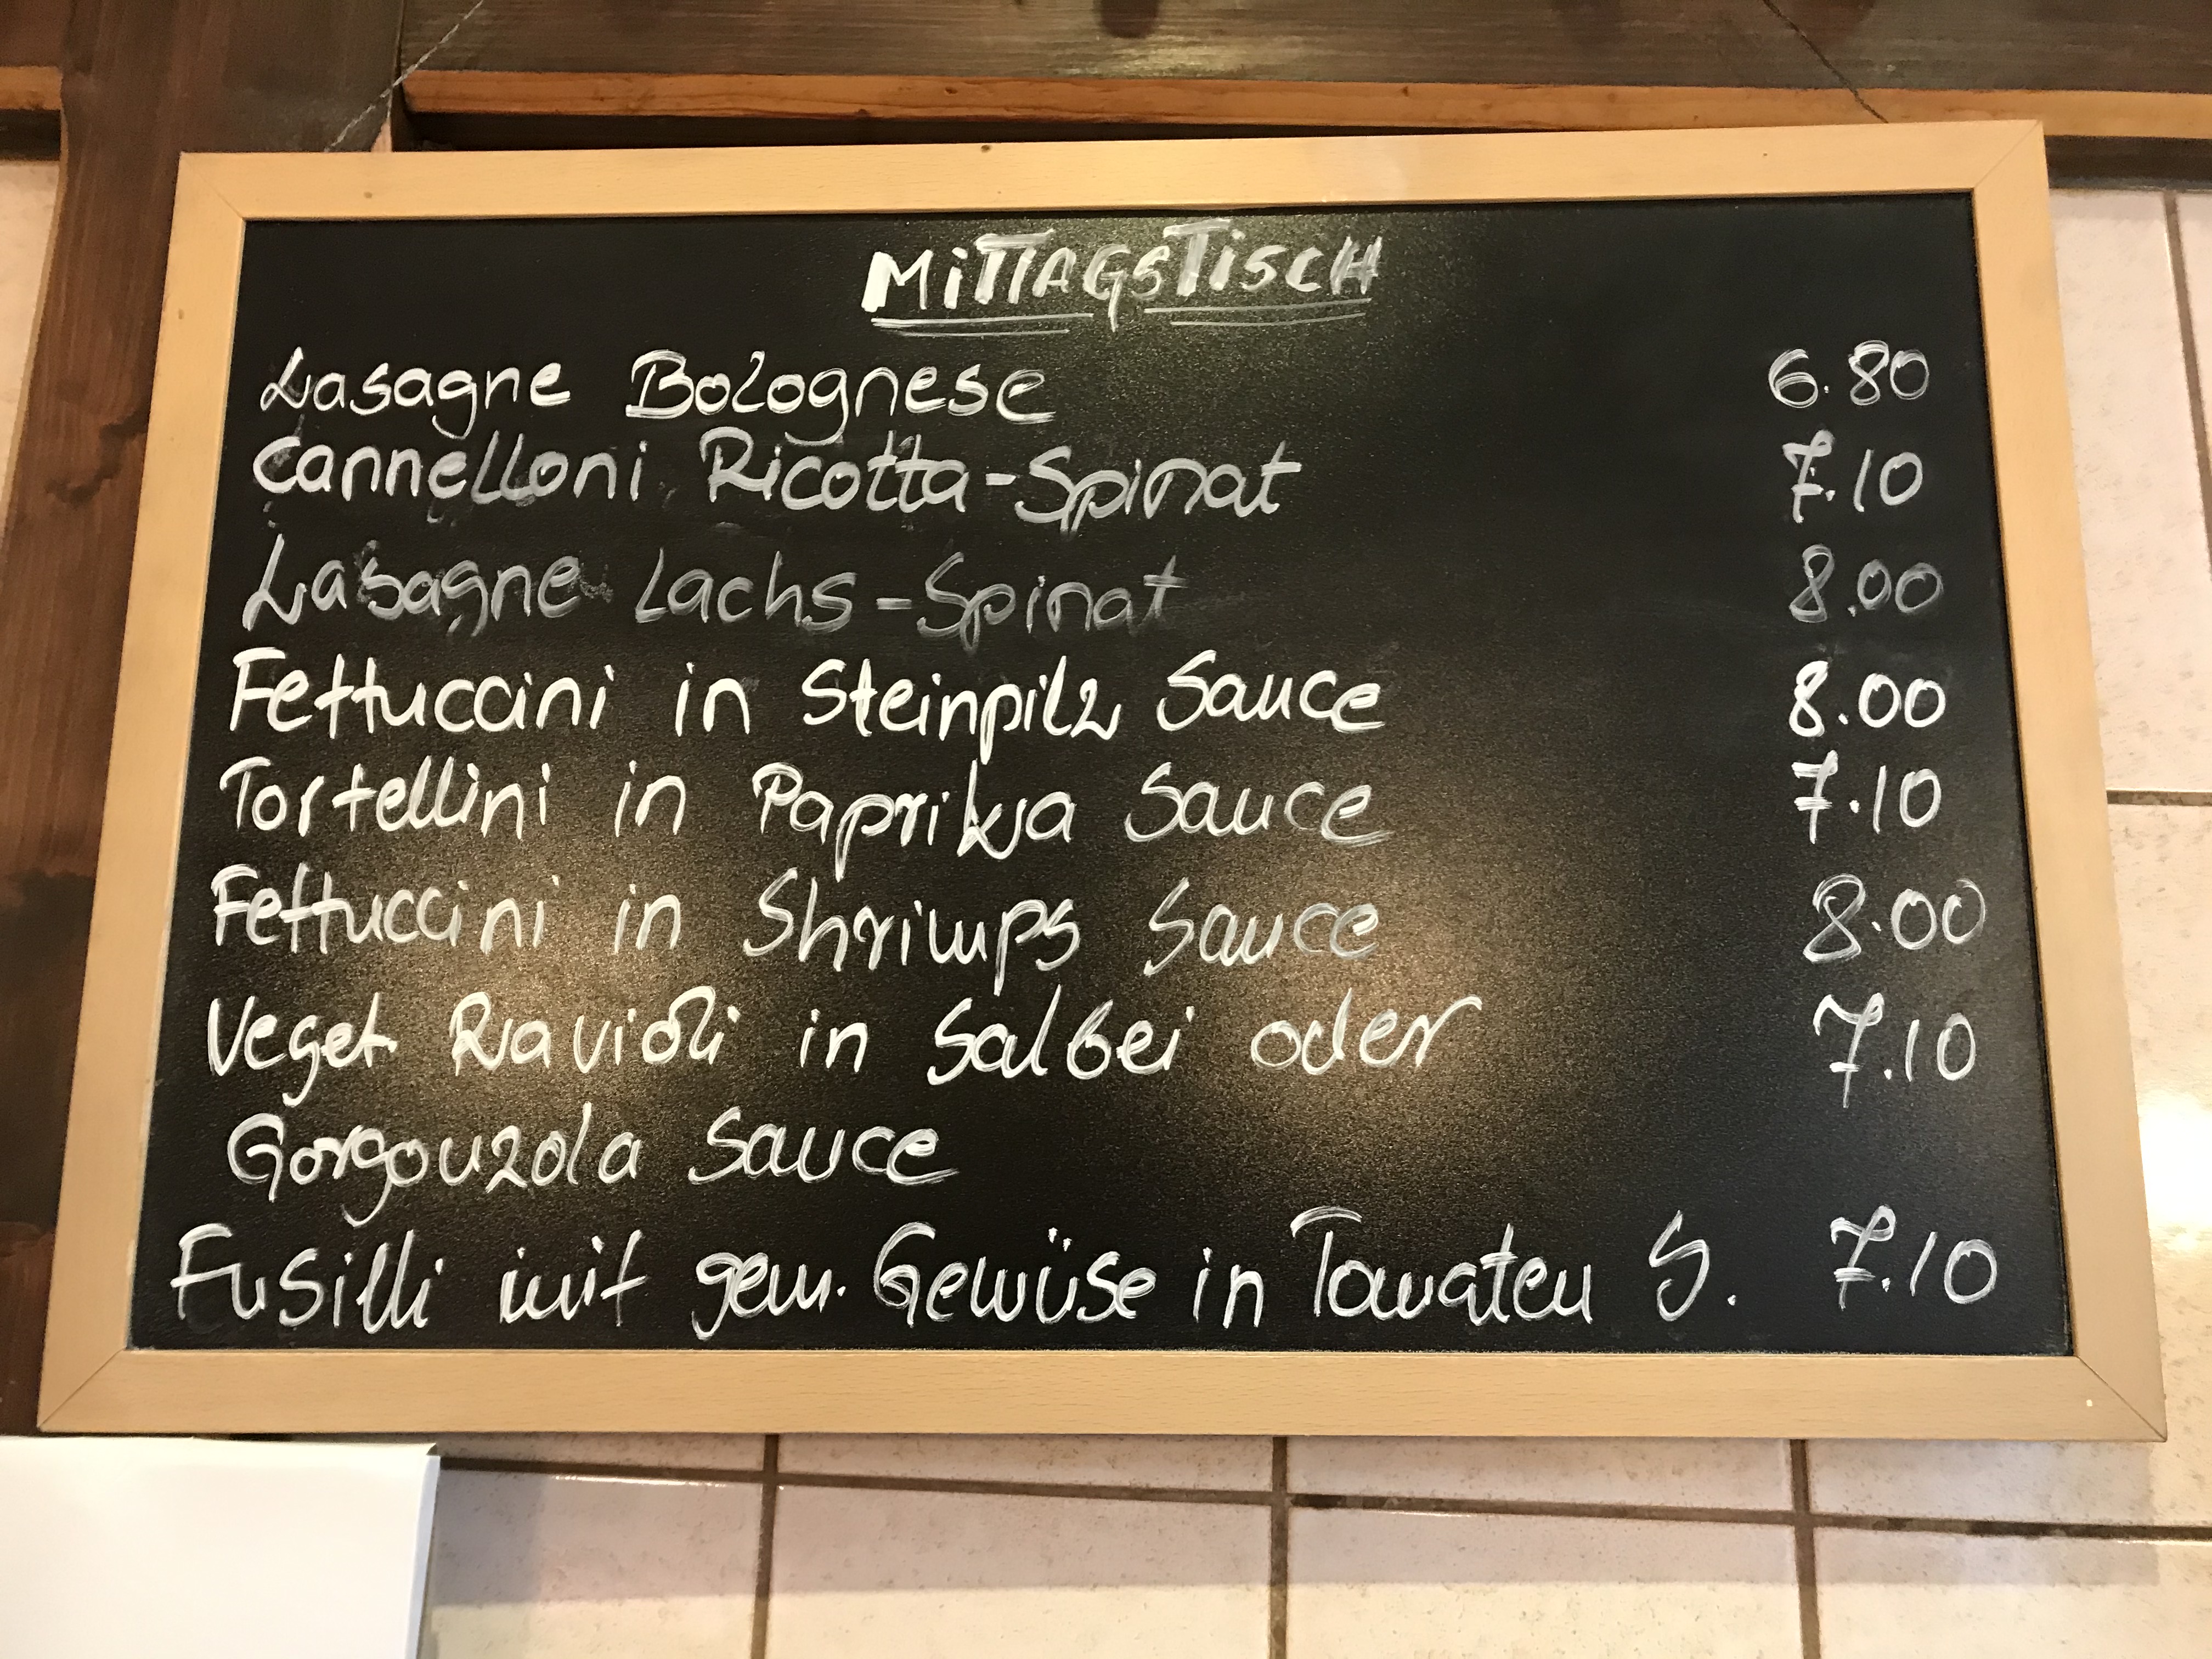 MiTTAGSTiSCH
Lasagne Bolognese 6.80
Cannelloni Ricotta-Spinat 7.10
Lasagne Lachs-Spinat 8.00
Fettuccini in Steinpilz Sauce 8.00
Tortellini in Paprika Sauce 7.10
Fettuccini in Shrimps Sauce 8.00
Veget. Ravioli in Salbei oder 7.10
Gorgonzola Sauce
Fusilli mit gem. Gemüse in Tomaten S. 7.10